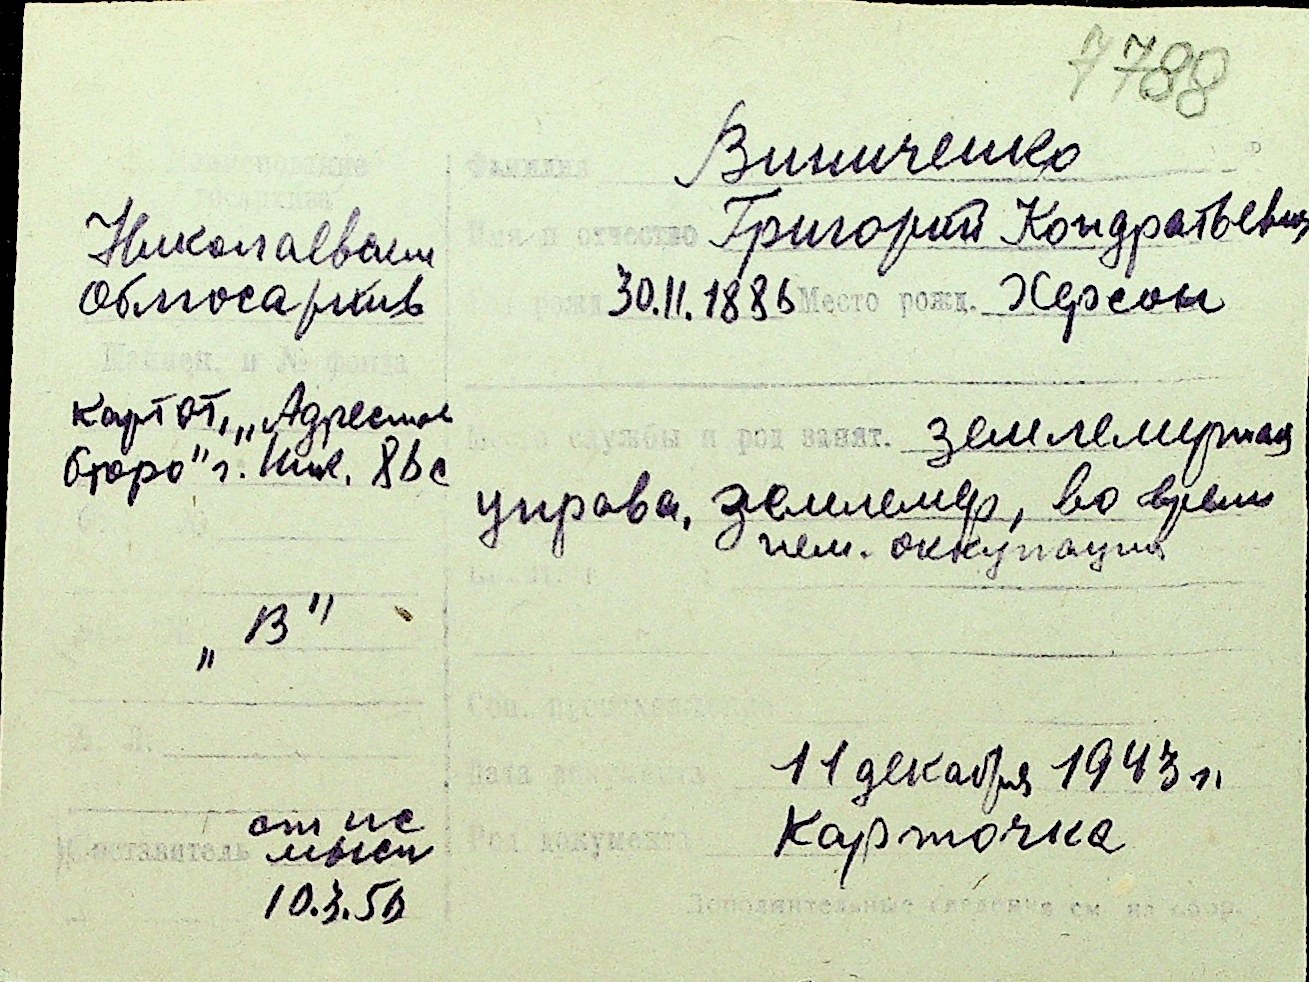 7788
Фамилия Виниченко
Николаевский
Имя и отчество Григорий Кондратьевич
Облгосархив
рожд. 30.II.1886 Место рожд. Херсон
Наимен. и № фонда
картот. „Адресное
Место службы и род занят. землемерная
бюро" г. Ник. 86с
управа, землемер, во время
нем. оккупации
„В"
Соц. происхождение
Л. Л.
Дата документа 11 декабря 1943 г.
Составитель
Род документа Карточка
10.3.56
Дополнительные сведения см. на обор.